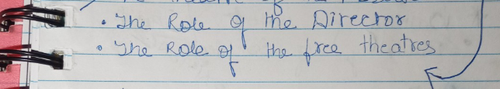 • The Role of the Director
• The Role of the free theatres